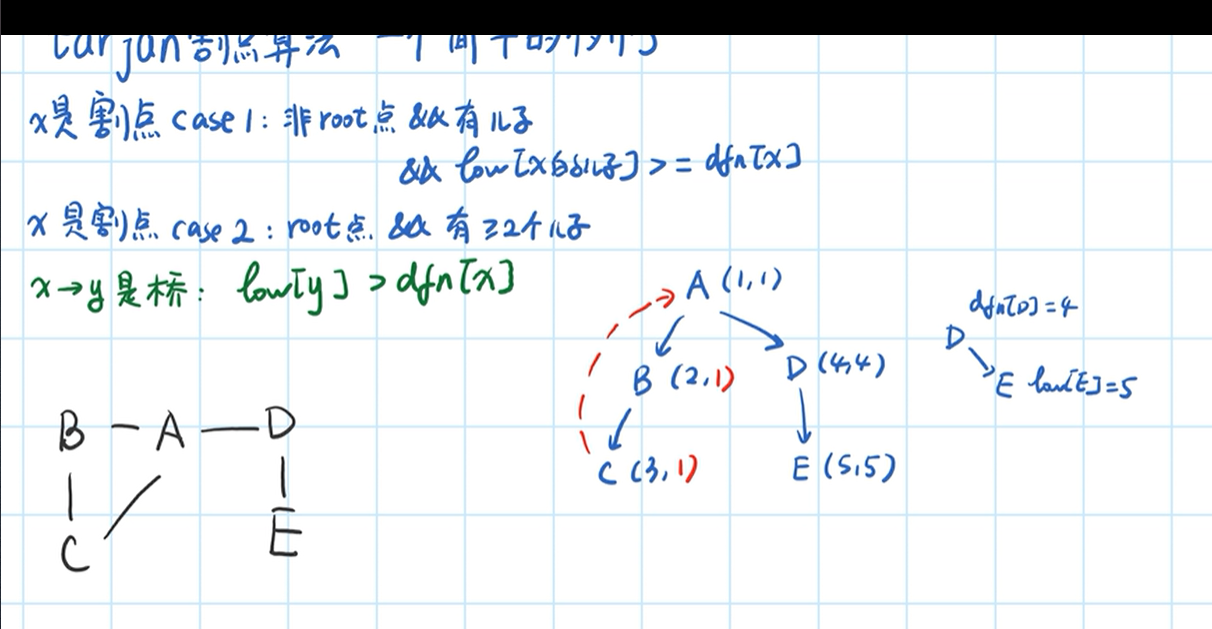 Tarjan割点算法 一个简单的例子
x是割点 case 1: 非root点 && 有儿子
&& low[x的儿子] >= dfn[x]
x是割点 case 2: root点 && 有≥2个儿子
x→y是桥: low[y] > dfn[x]
A (1,1)
B (2,1)
D (4,4)
C (3,1)
E (5,5)
dfn[D]=4
D
E low[E]=5
B A D
C E